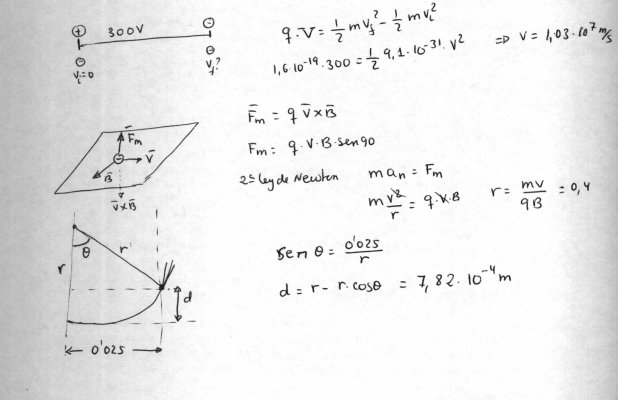 ⊕ 300V ⊖
⊖ Vi=0
⊖ Vf?
q·V = 1/2 m Vf² - 1/2 m Vi²
1,6·10⁻¹⁹·300 = 1/2 9,1·10⁻³¹·V² ⇒ V = 1,03·10⁷ m/s
F̄m
⊖ V̄
B̄
V̄×B̄
F̄m = q V̄×B̄
Fm = q·V·B·sen90
2ª Ley de Newton m an = Fm
m V²/r = q·V·B r = mV/qB = 0,4
r θ r d
0'025
sen θ = 0'025/r
d = r - r·cosθ = 7,82·10⁻⁴ m